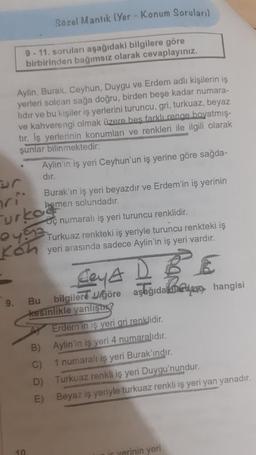 Sözel Mantık (Yer - Konum Soruları)
9 - 11. soruları aşağıdaki bilgilere göre
birbirinden bağımsız olarak cevaplayınız.
Aylin, Burak, Ceyhun, Duygu ve Erdem adlı kişilerin iş
yerleri soldan sağa doğru, birden beşe kadar numara-
lıdır ve bu kişiler iş yerlerini turuncu, gri, turkuaz, beyaz
ve kahverengi olmak üzere beş farklı renge boyatmış-
tır. İş yerlerinin konumları ve renkleri ile ilgili olarak
şunlar bilinmektedir:
Aylin'in iş yeri Ceyhun'un iş yerine göre sağda-
dır.
Burak'ın iş yeri beyazdır ve Erdem'in iş yerinin
hemen solundadır.
Üç numaralı iş yeri turuncu renklidir.
Turkuaz renkteki iş yeriyle turuncu renkteki iş
yeri arasında sadece Aylin'in iş yeri vardır.
9. Bu bilgilere göre aşağıdakilerden hangisi
kesinlikle yanlıştır?
A) Erdem'in iş yeri gri renklidir.
B) Aylin'in iş yeri 4 numaralıdır.
C) 1 numaralı iş yeri Burak'ındır.
D) Turkuaz renkli iş yeri Duygu'nundur.
E) Beyaz iş yeriyle turkuaz renkli iş yeri yan yanadır.
10
yerinin yeri